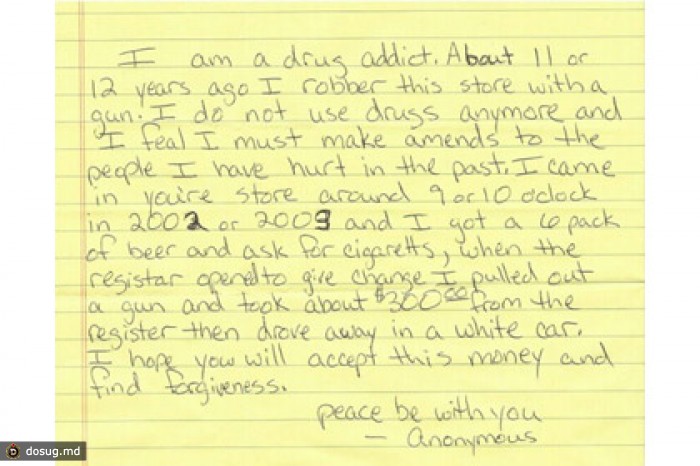 I am a drug addict. About 11 or
12 years ago I robber this store with a
gun. I do not use drugs anymore and
I feal I must make amends to the
people I have hurt in the past. I came
in you're store around 9 or 10 oclock
in 2002 or 2003 and I got a 6 pack
of beer and ask for cigaretts, when the
registar opend to give change I pulled out
a gun and took about $300.00 from the
register then drove away in a white car.
I hope you will accept this money and
find forgiveness.
peace be with you
- Anonymous
dosug.md